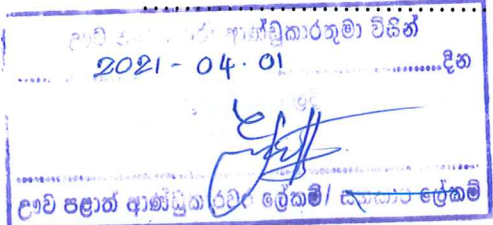 ඌව ආණ්ඩුකාරතුමා විසින්
2021 - 04. 01 දින
ඌව පළාත් ආණ්ඩුකාරවර ලේකම්/ සහකාර ලේකම්